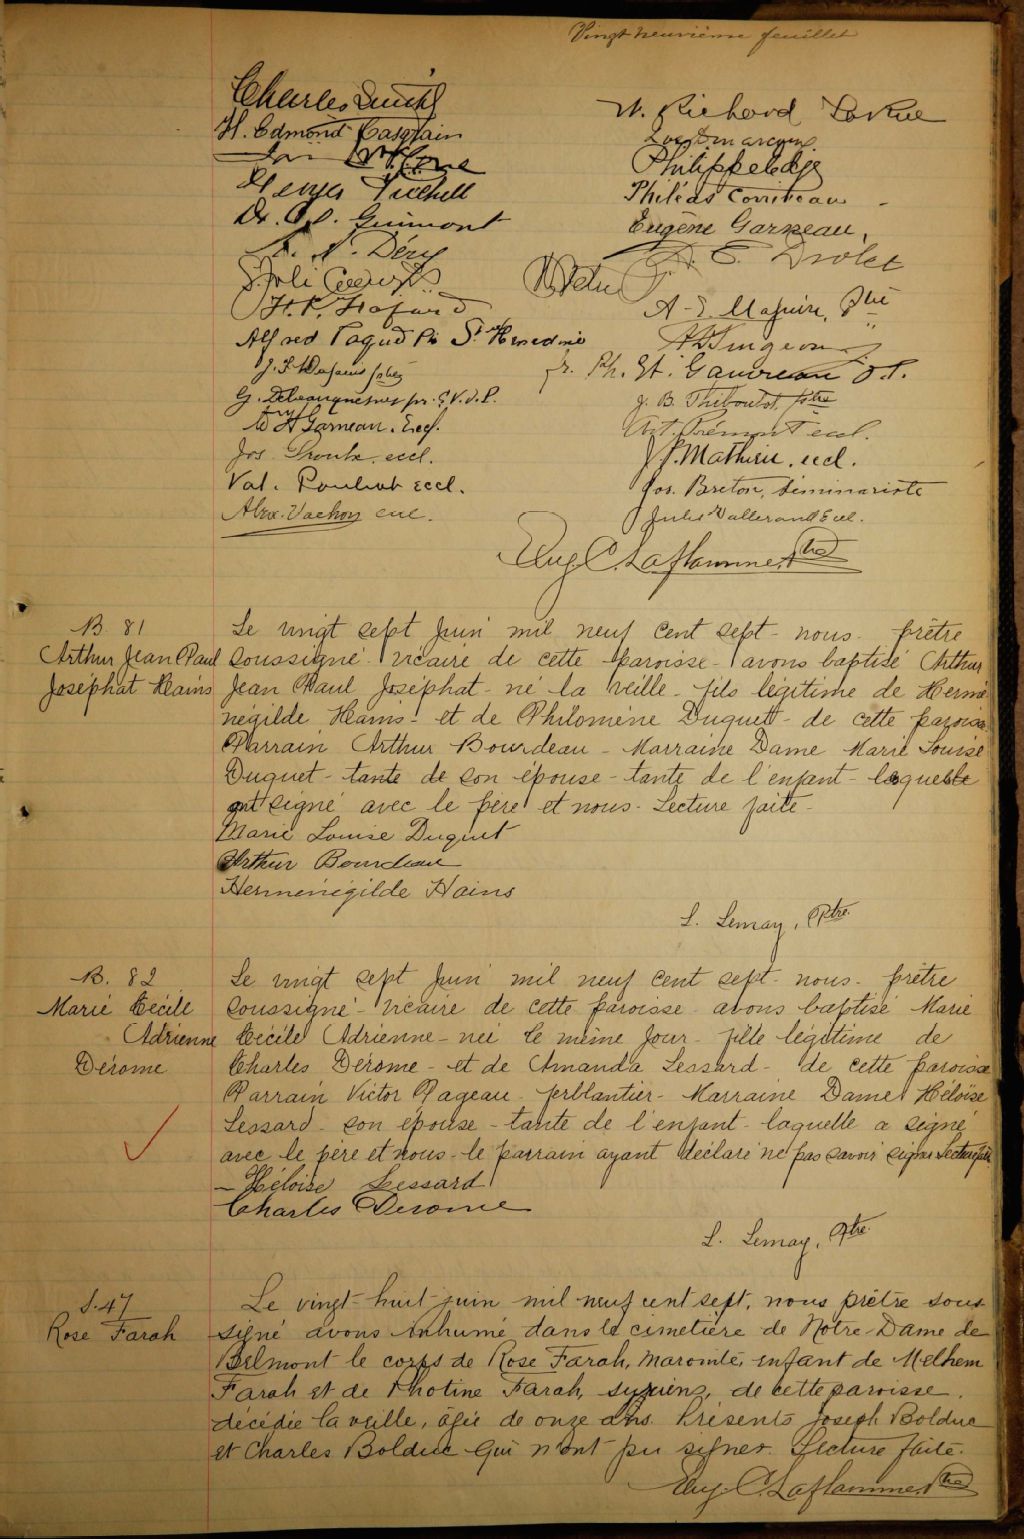 Vingt neuvième feuillet
Charles Smith
W. Richard LaRue
H. Edmond Casgrain
Philippe
Philéas Corriveau
Dr. Guimont
Eugène Garneau,
Déry
E. Drolet
A. E. Maguire, Ptre
Alfred Paquet
Ph. Et. Gauvreau
J. B. Thiboutot, ptre
Garneau. Eccl.
Art. Frémont eccl.
Jos. eccl.
J. P. Mathieu. eccl.
Val. Pouliot eccl.
Jos. Breton, séminariste
Alex. Vachon eccl.
Jules Vallerand Eccl.
Eug. C. Laflamme, Ptre
B. 81
Arthur Jean Paul
Joséphat Hains
Le vingt sept Juin mil neuf cent sept - nous - prêtre
soussigné - vicaire de cette paroisse - avons baptisé Arthur
Jean Paul Joséphat - né la veille - fils légitime de Hermé
négilde Hains - et de Philomène Duquet - de cette paroisse
Parrain Arthur Bourdeau - Marraine Dame Marie Louise
Duquet - tante de son épouse - tante de l'enfant - lesquels
ont signé avec le père et nous. Lecture faite -
Marie Louise Duquet
Arthur Bourdeau
Herménégilde Hains
L. Lemay, Ptre
B. 82
Marie Cécile
Adrienne
Dérome
Le vingt sept Juin mil neuf cent sept - nous - prêtre
soussigné - vicaire de cette paroisse avons baptisé Marie
Cécile Adrienne - née le même jour - fille légitime de
Charles Dérome - et de Amanda Lessard - de cette paroisse
Parrain Victor Pageau - ferblantier - Marraine Dame Héloïse
Lessard - son épouse - tante de l'enfant - laquelle a signé
avec le père et nous - le parrain ayant déclaré ne pas savoir signer Lecture faite
- Héloise Lessard
Charles Derome
L. Lemay, Ptre
S. 47
Rose Farah
Le vingt-huit juin mil neuf cent sept, nous prêtre sous-
signé avons inhumé dans le cimetière de Notre-Dame de
Belmont le corps de Rose Farah, maronite, enfant de Melhem
Farah et de Photine Farah, syriens, de cette paroisse,
décédée la veille, âgée de onze ans. Présents Joseph Bolduc
et Charles Bolduc qui n'ont pu signer. Lecture faite.
Eug. C. Laflamme, Ptre